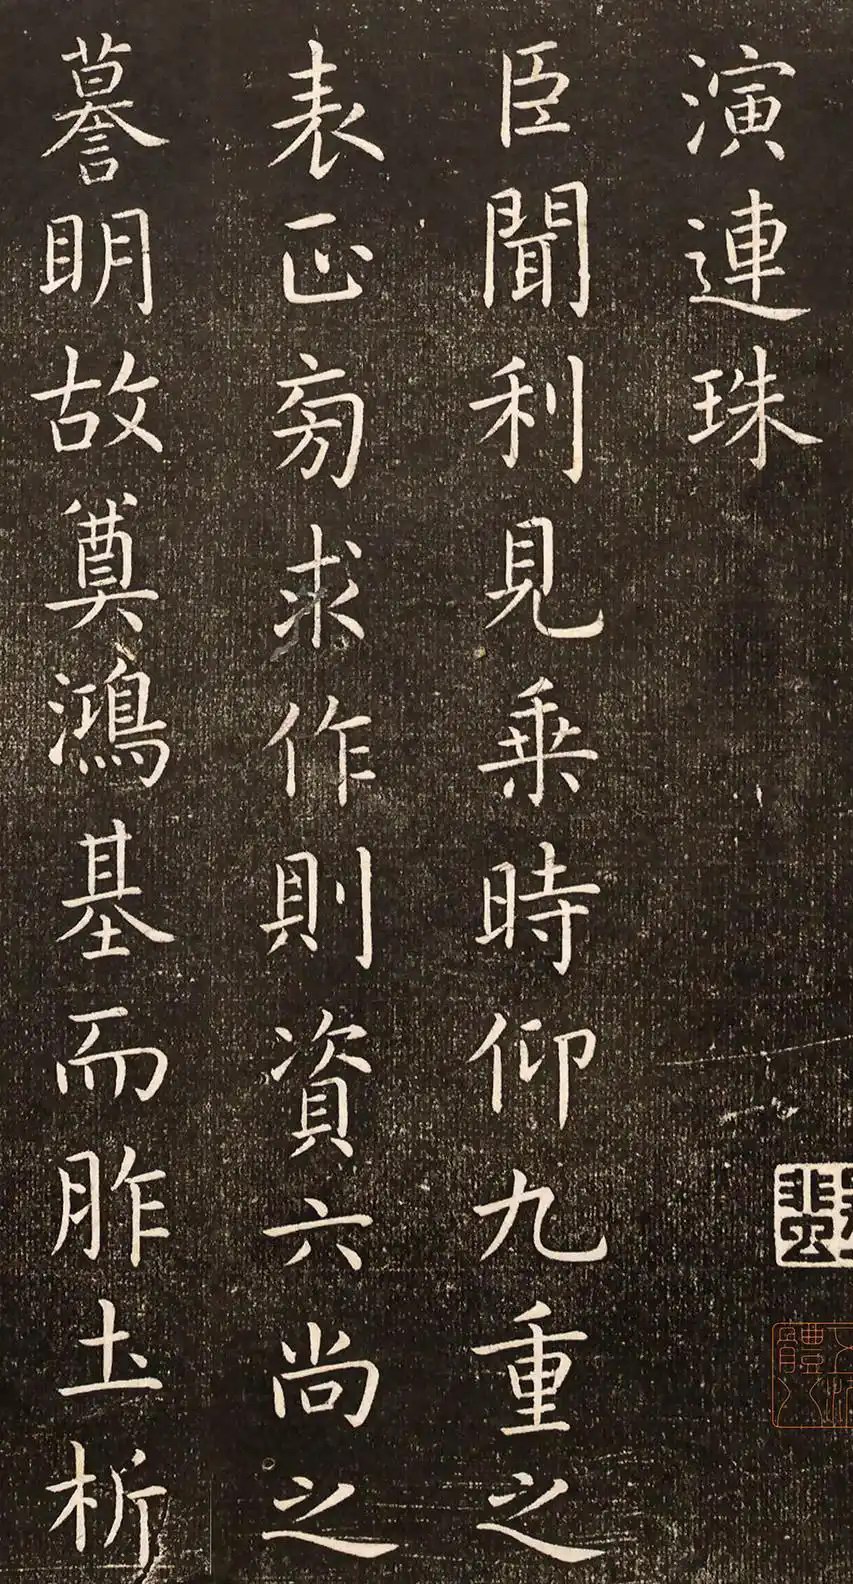 演連珠
臣聞利見乗時仰九重之
表正旁求作則資六尚之
謩眀故奠鴻基而胙圡析